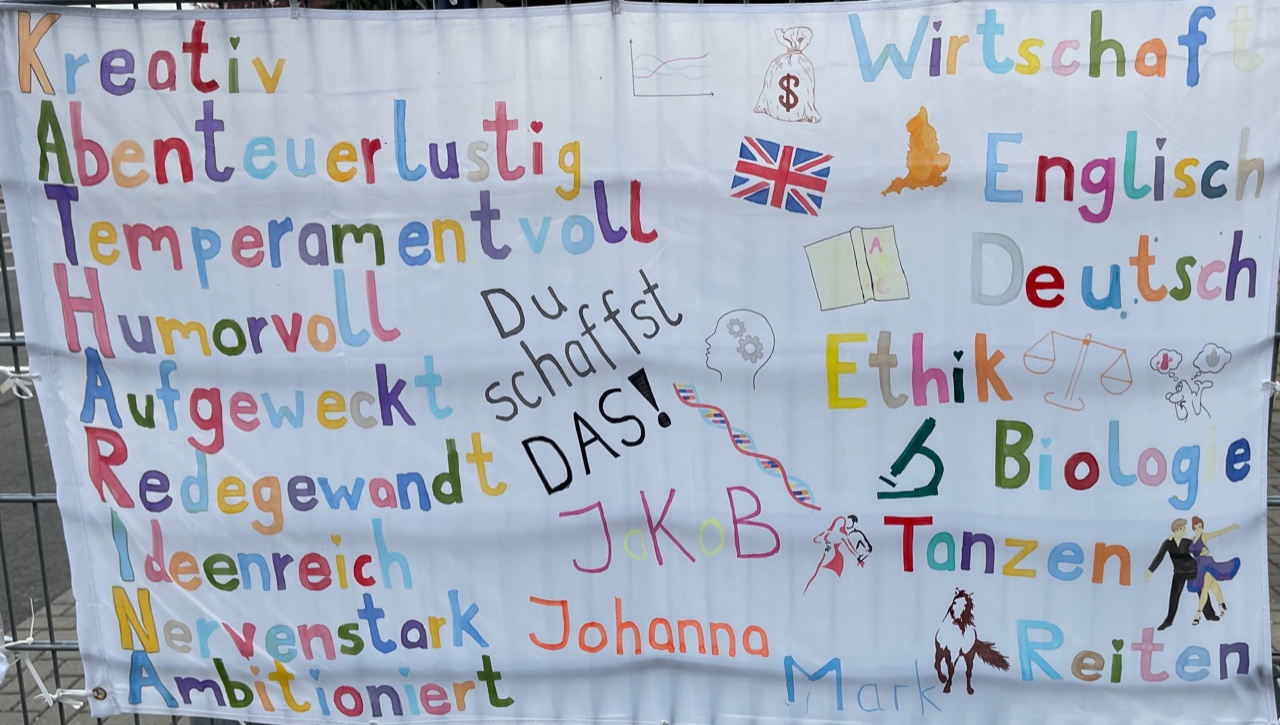 Kreativ
Abenteuerlustig
Temperamentvoll
Humorvoll
Aufgeweckt
Redegewandt
Ideenreich
Nervenstark
Ambitioniert
Du
schaffst
DAS!
JaKoB
Johanna
Mark
$
Wirtschaft
Englisch
A
B
C
Deutsch
Ethik
Biologie
Tanzen
Reiten